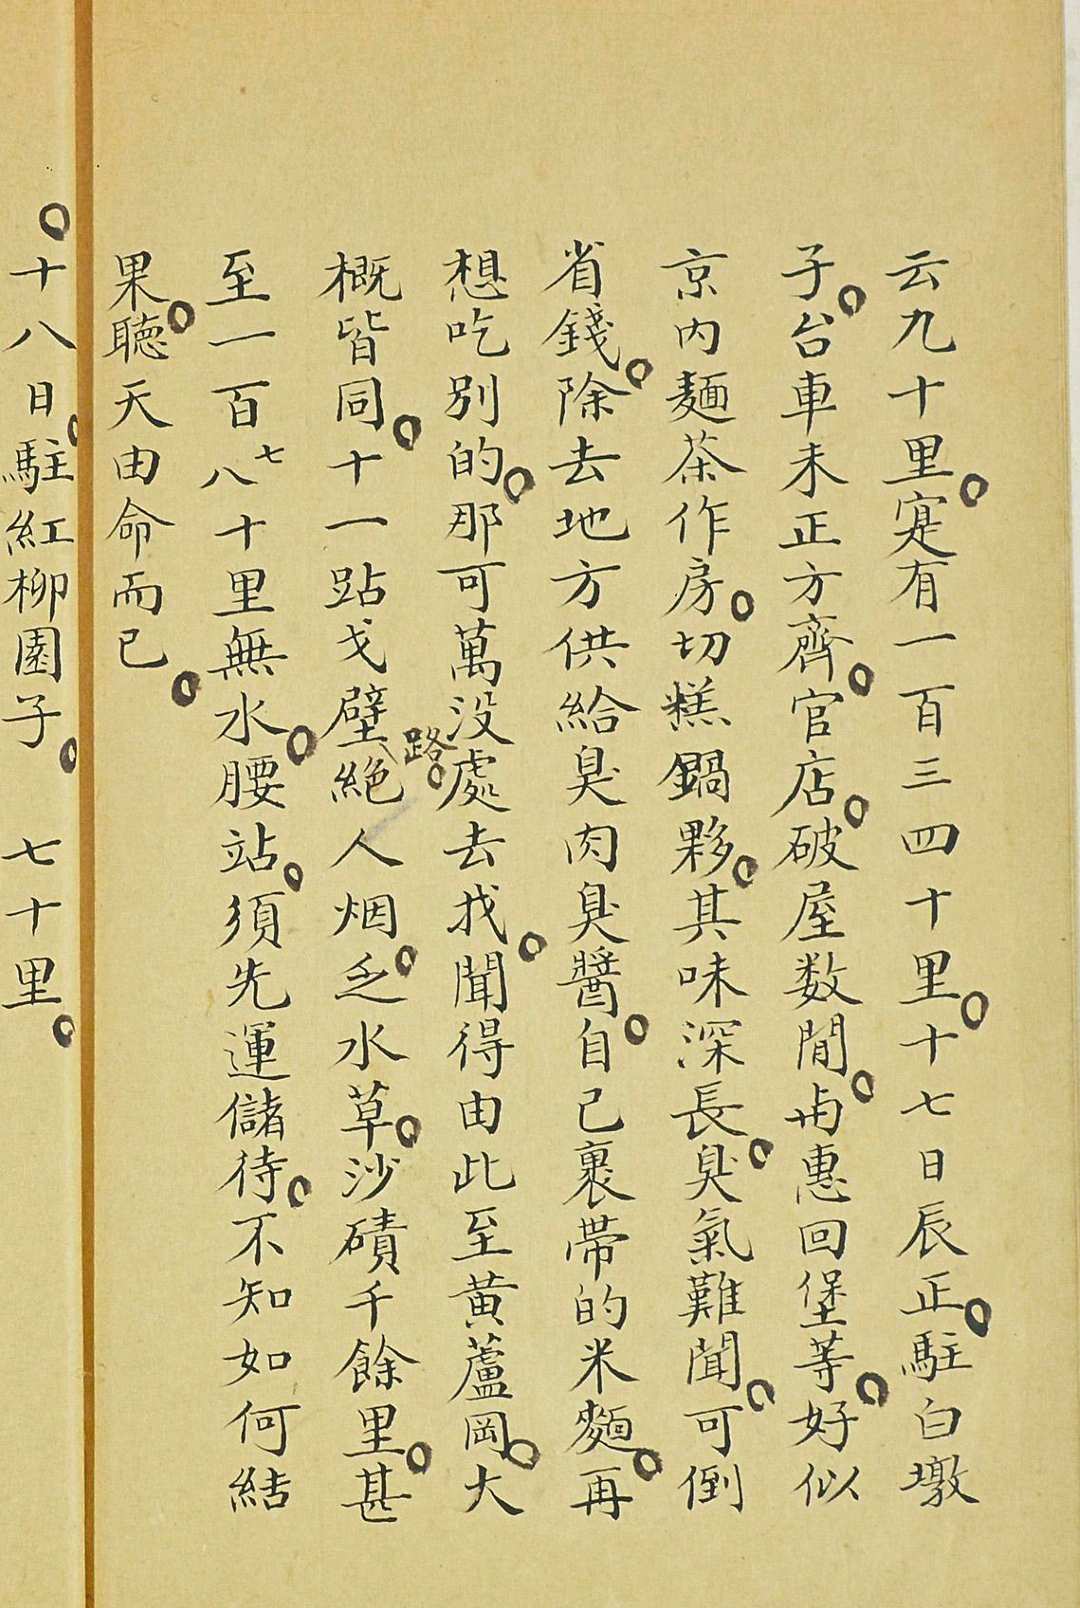 云九十里。寔有一百三四十里。十七日辰正。駐白墩
子。台車未正方齊。官店。破屋数間。与惠回堡等。好似
京內麵茶作房。切糕鍋夥。其味深長。臭氣難聞。可倒
省錢。除去地方供給臭肉臭醬。自己裹帶的米麵。再
想吃別的。那可萬没處去找。聞得由此至黃蘆岡。大
概皆同。十一跕戈壁路。絶人烟。乏水草。沙磧千餘里。甚
至一百七八十里無水。腰站。須先運儲待。不知如何結
果。聽天由命而已。
。十八日。駐紅柳園子。 七十里。